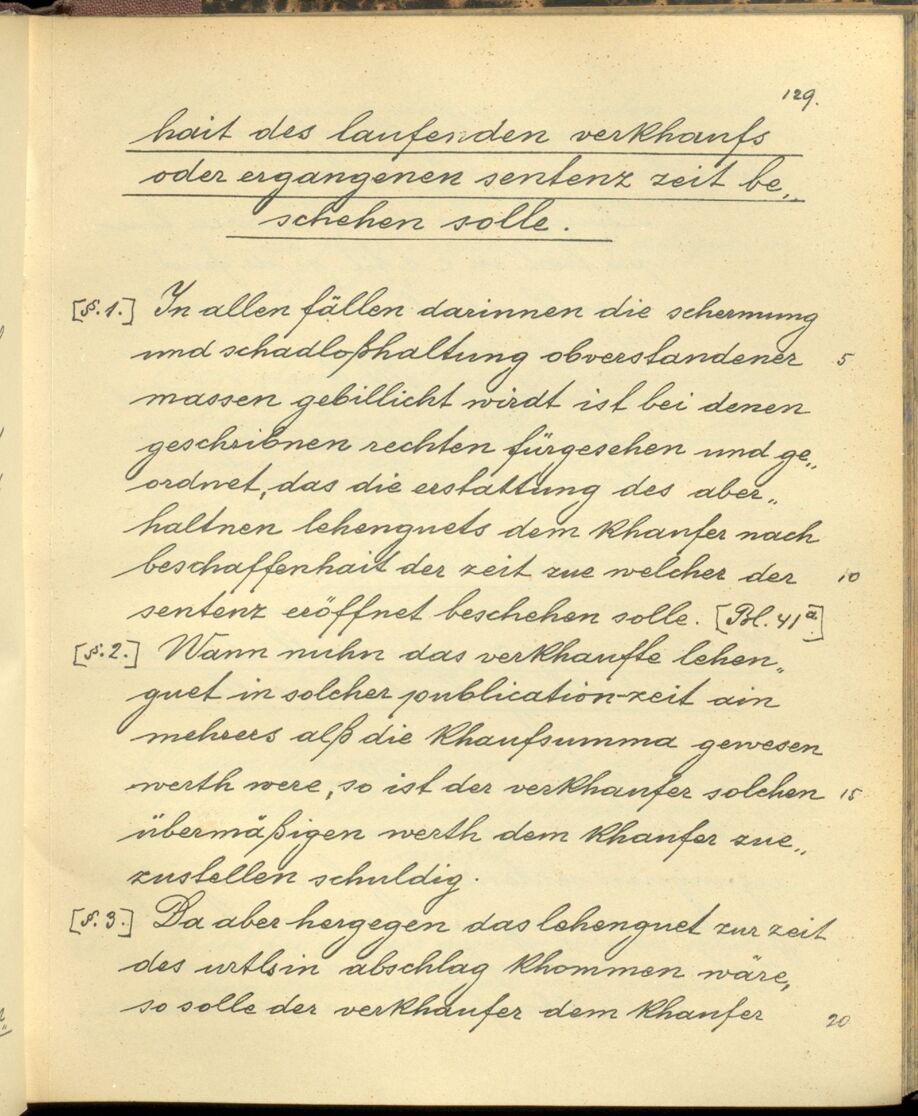 129.
hait des laufenden verkhaufs
oder ergangenen sentenz zeit be„
schehen solle.
[§.1.] In allen fällen darinnen die schermung
und schadloßhaltung obverstandener 5
massen gebillicht wirdt ist bei denen
geschribnen rechten fürgesehen und ge„
ordnet, das die erstattung des aber„
haltnen lehenguets dem khaufer nach
beschaffenhait der zeit zue welcher der 10
sentenz eröffnet beschehen solle. [Bl. 41a]
[§.2.] Wann nuhn das verkhaufte lehen„
guet in solcher publication-zeit ain
mehrers alß die khaufsumma gewesen
werth were, so ist der verkhaufer solchen 15
übermäßigen werth dem khaufer zue„
zustellen schuldig.
[§.3.] Da aber hergegen das lehenguet zur zeit
des urtls in abschlag khommen wäre,
so solle der verkhaufer dem khaufer 20